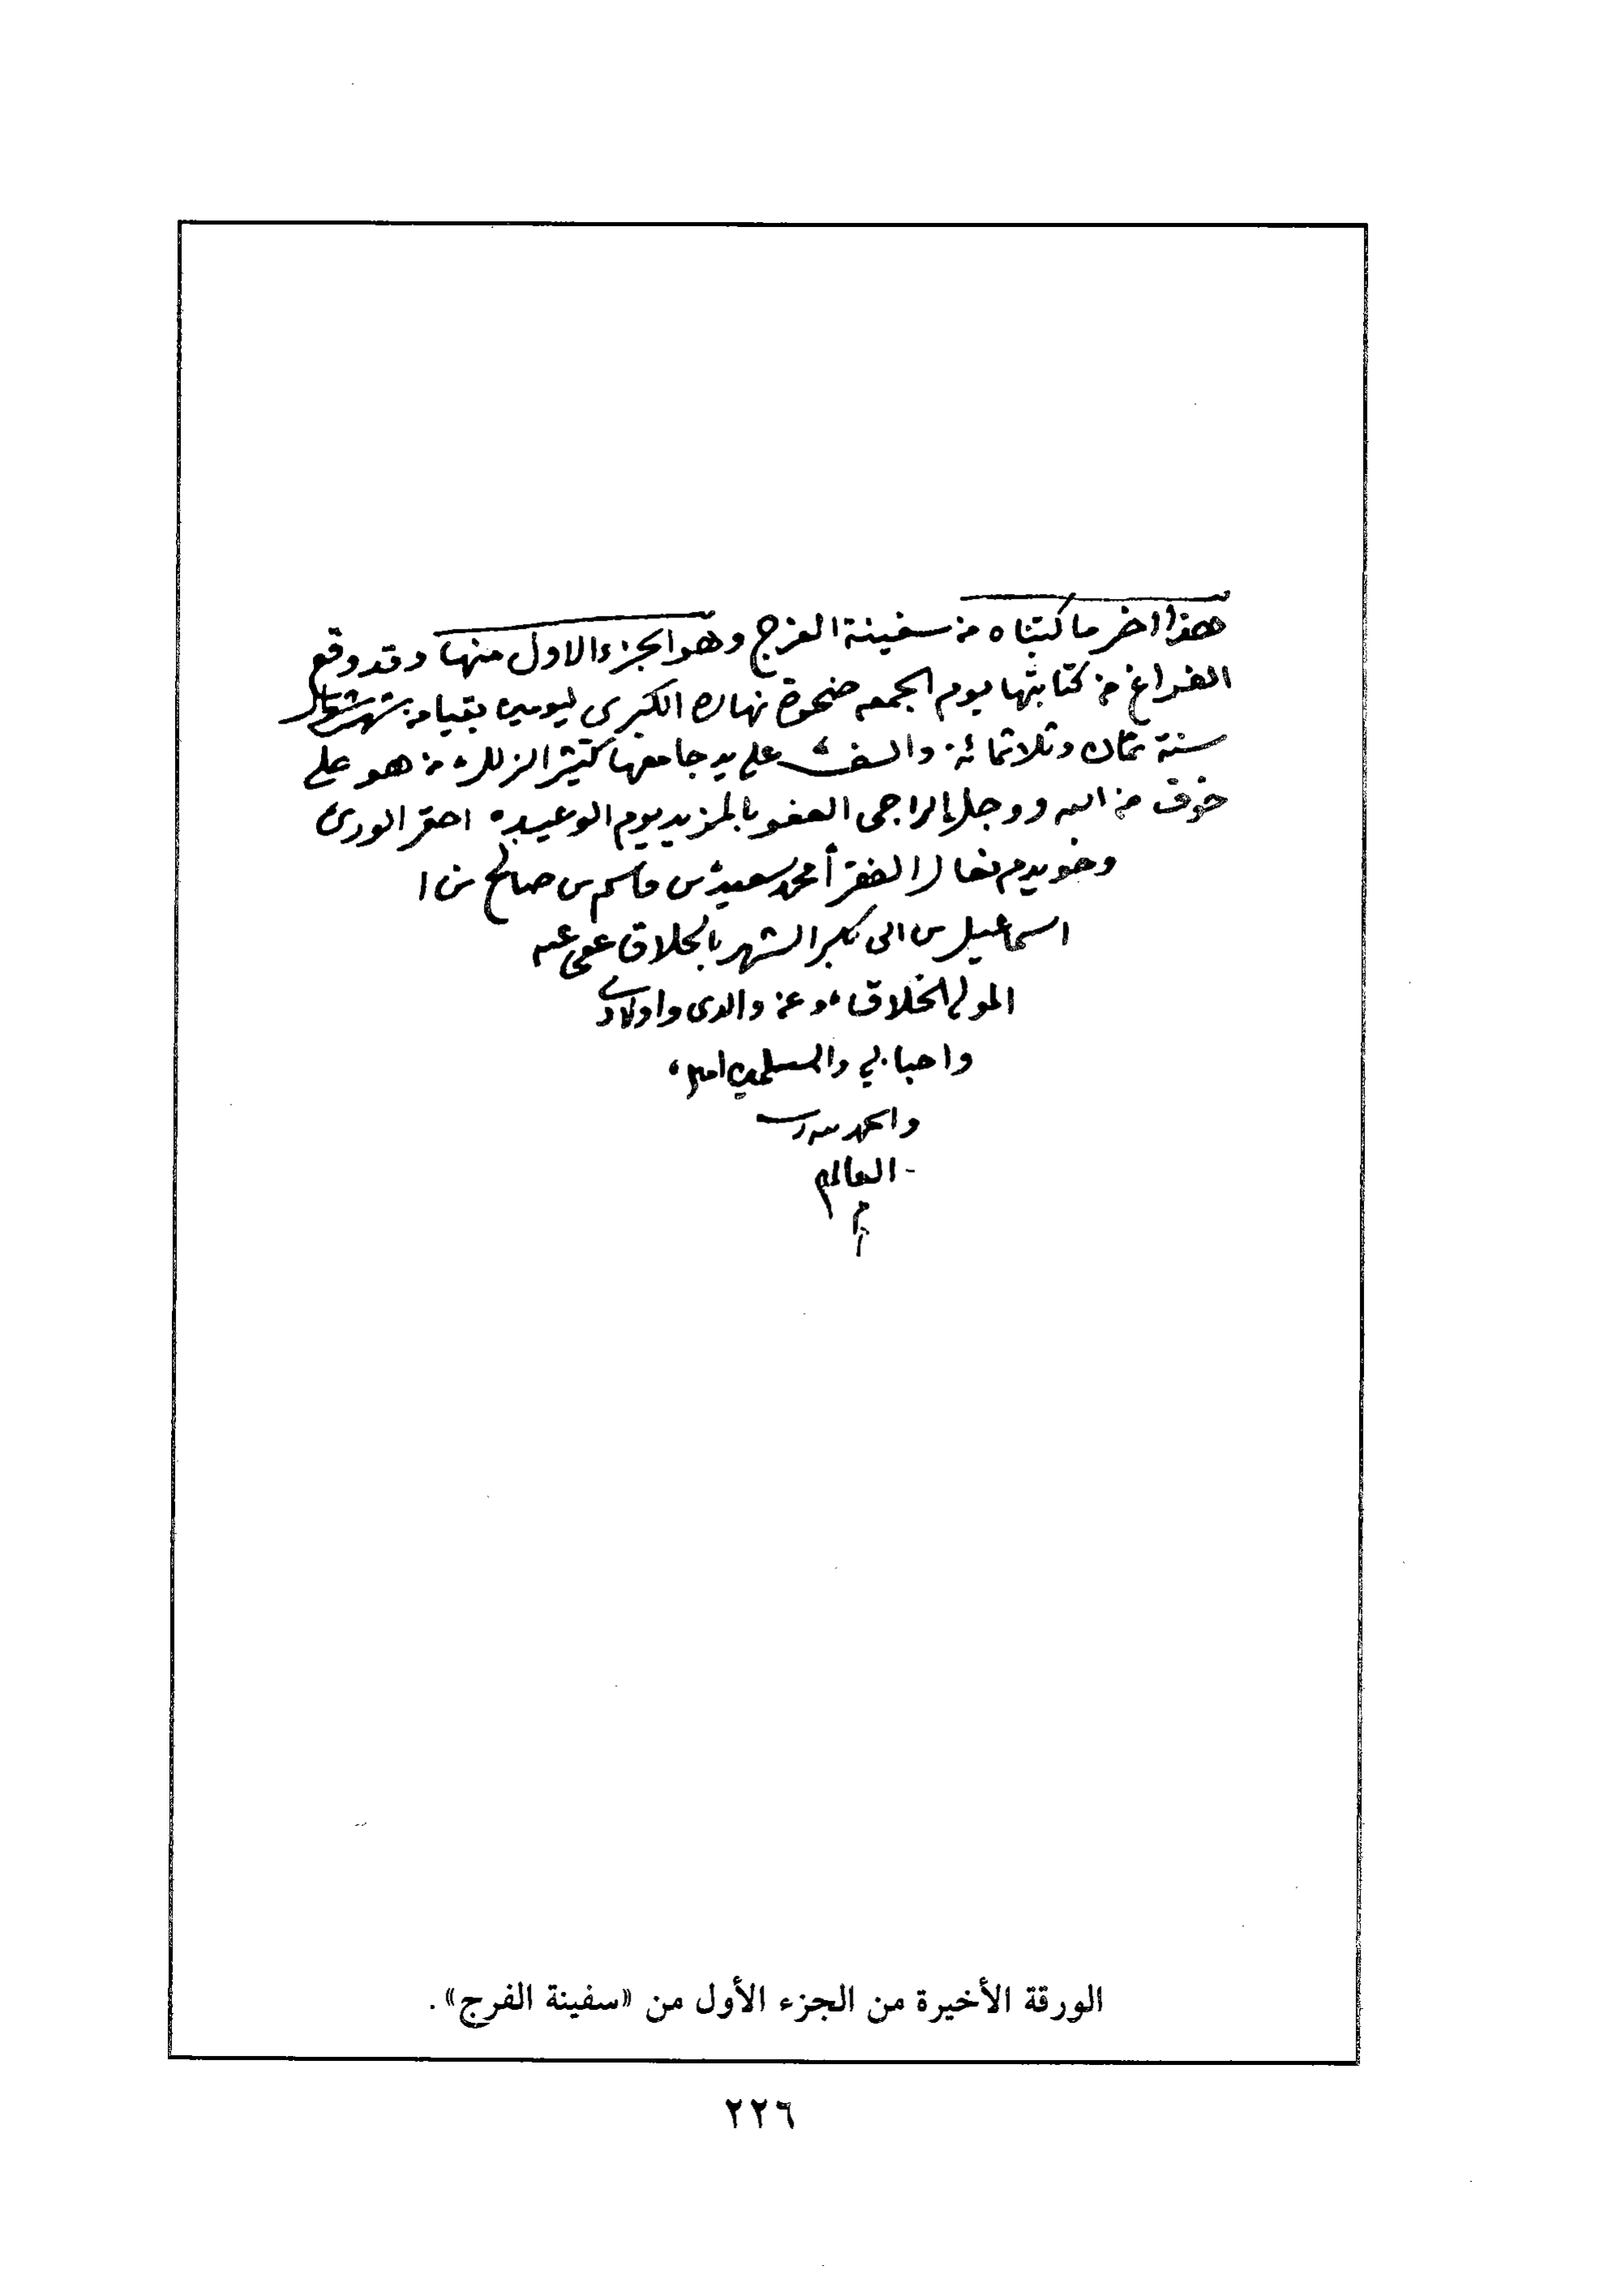 هذا اخر ما كتبناه من سفينة الفرج وهو الجزء الاول منها وقد وقع
الفراغ من كتابتها يوم الجمعه ضحوة نهاره الكبرى ليومين بقيا من شهر شوال
سنة ثمان وثلاثمائة والف على يد جامعها كثير الزلل من هو على
خوف من الله ووجل الراجى العفو بالمزيد يوم الوعيد احقر الورى
وخويدم نعال الفقرا محمد سعيد بن قاسم بن صالح بن ا
اسماعيل بن ابى بكر الشهير بالحلاق عفى عنه
المولى الخلاق وعن والدى واولادى
واحبابي والمسلمين امين
والحمد لله رب
العالم
ين
الورقة الأخيرة من الجزء الأول من «سفينة الفرج».
٢٢٦